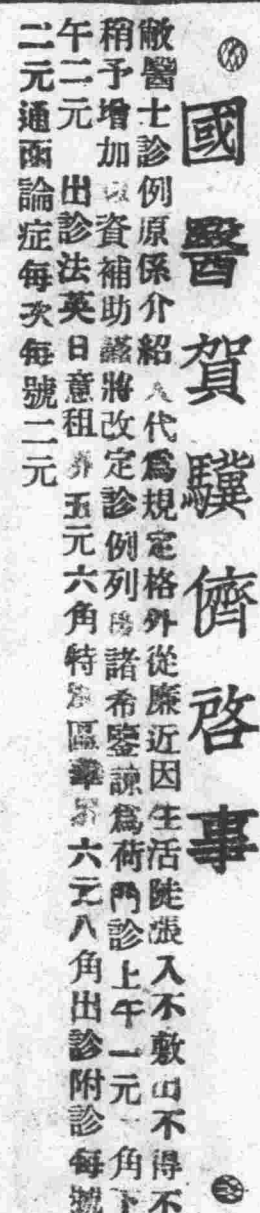 國醫賀驥儕啓事
敝醫士診例原係介紹人代爲規定格外從廉近因生活陡漲入不敷出不得不
稍予增加以資補助茲將改定診例列陽諸希鑒諒爲荷門診上午一元 角下
午二元 出診法英日意租界五元六角特別區華界六元八角出診附診每號
二元通函論症每次每號二元